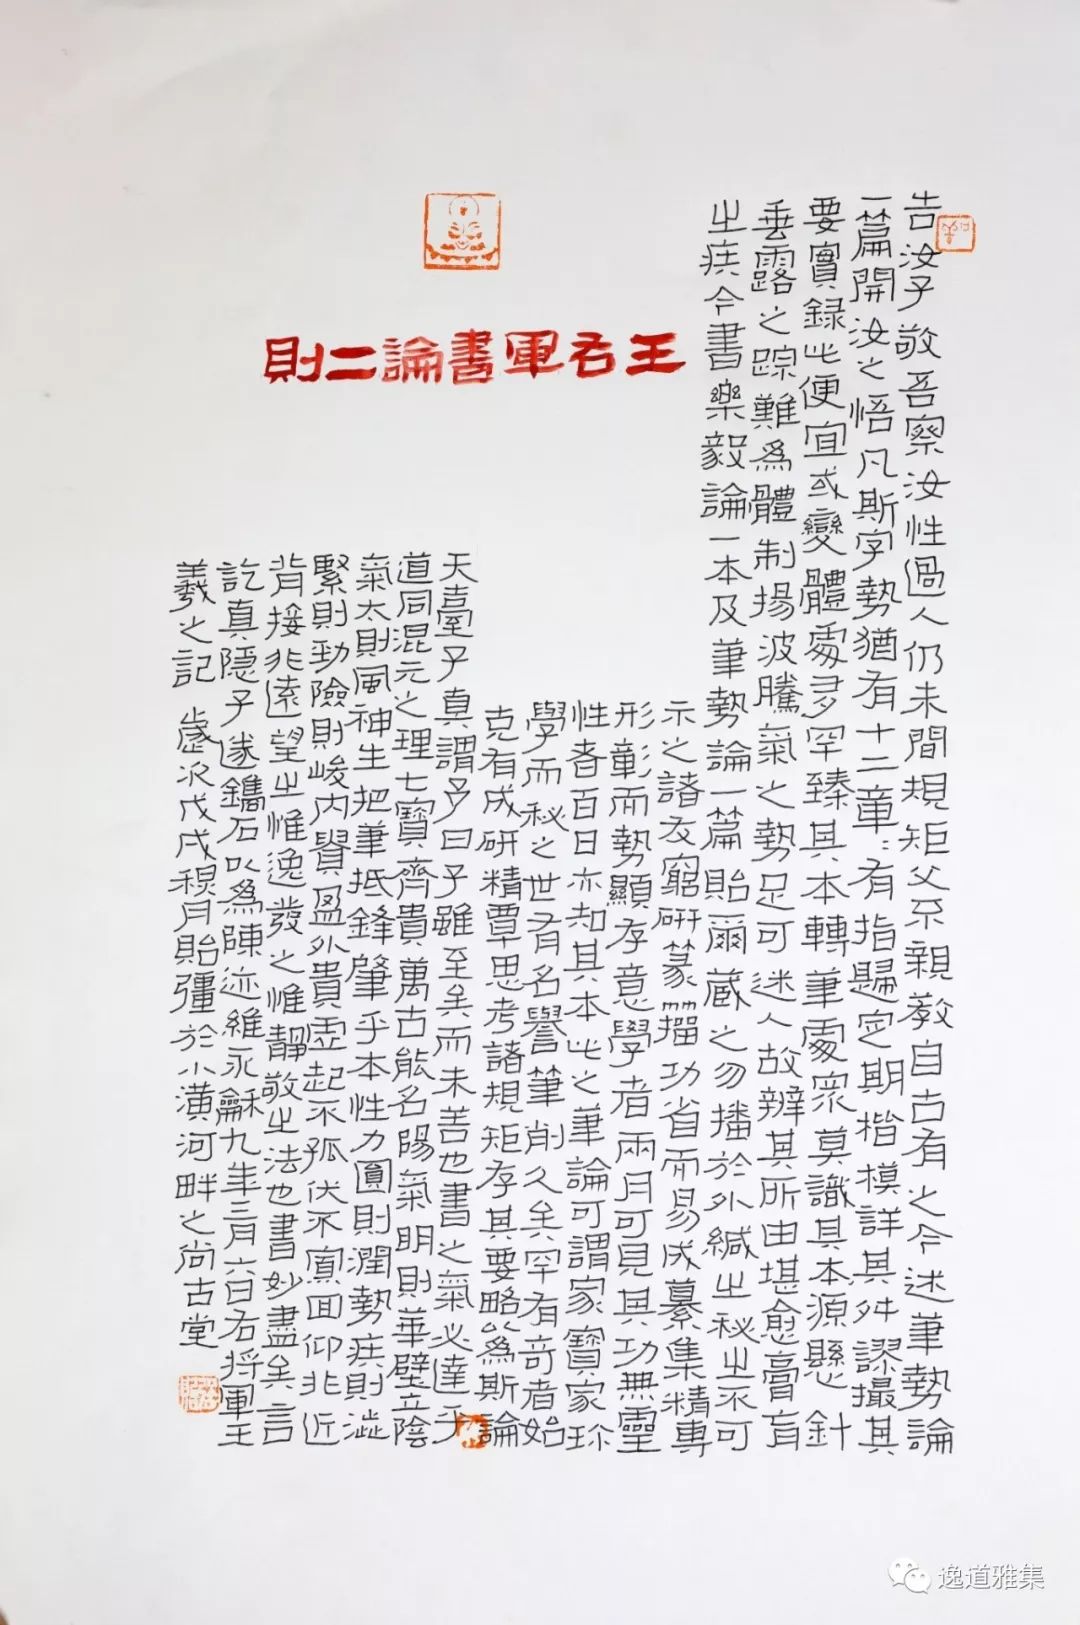 王右軍書論二則
告汝子敬吾察汝性過人仍未閒規矩父系親教自古有之今述筆勢論
一篇開汝之悟凡斯字勢猶有十二章:有指歸定期楷模詳其舛謬撮其
要實録此便宜或變體處多罕臻其本轉筆處眾莫識其本源懸針
垂露之踪難為體制揚波騰氣之勢足可迷人故辨其所由堪愈膏肓
之疾今書樂毅論一本及筆勢論一篇貽爾藏之勿播於外緘之秘之不可
示之諸友窮研篆籀功省而易成纂集精專
形彰而勢顯存意學者兩月可見其功無靈
性者百日亦知其本此之筆論可謂家寶家珍
學而秘之世有名譽筆削久矣罕有奇者始
克有成研精覃思考諸規矩存其要略以為斯論
天臺子真謂予曰子雖至矣而未善也書之氣必達乎
道同混元之理七寶齊貴萬古能名陽氣明則華壁立陰
氣太則風神生把筆抵鋒肇乎本性力圓則潤勢疾則澀
緊則勁險則峻內貴盈外貴虛起不孤伏不寡面仰非近
背接非遠望之惟逸發之惟靜敬之法也書妙盡矣言
訖真隱子遂鐫石以為陳迹維永龢九年三月六日右將軍王
羲之記 歲次戊戌穆月貽彊於小潢河畔之尚古堂
逸道雅集